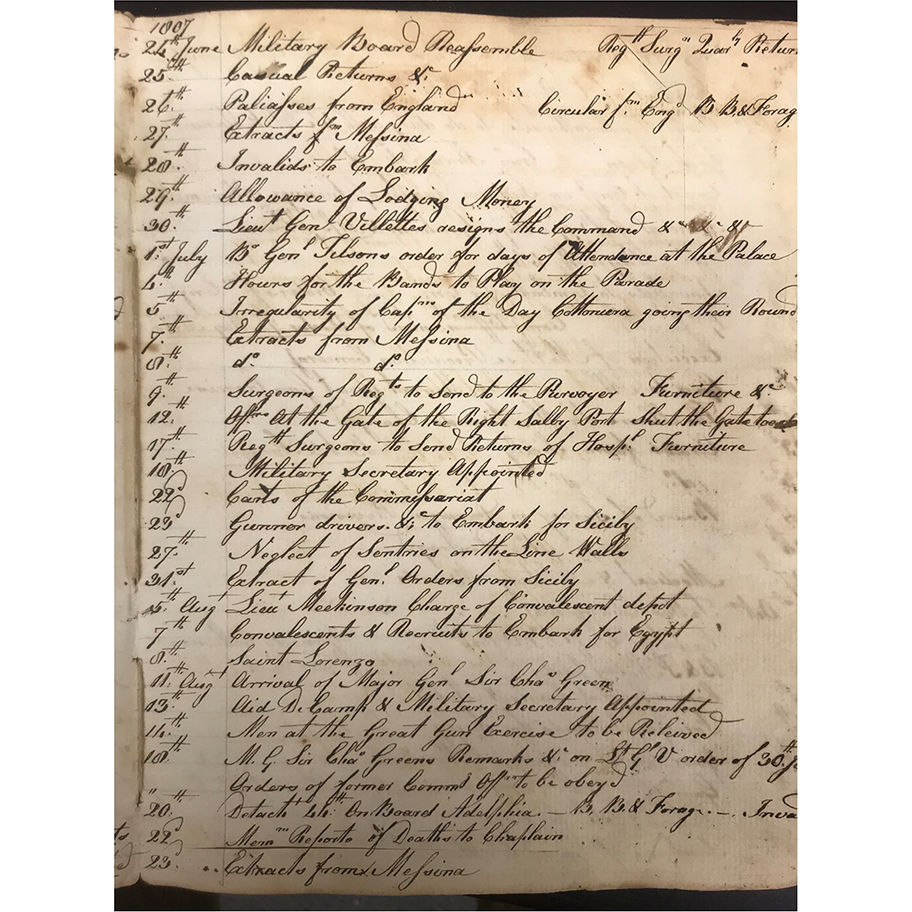 1807
24th June Military Board Reassemble Regtl Surgn Quarly Return
25th Casual Returns &c
26th Paliasses from England Circular fm Engd B. B. & Forag
27th Extracts fm Messina
28th Invalids to Embark
29th Allowance of Lodging Money
30th Lieut Genl Villettes resigns the Command &c &c &c
1st July Br Genl Tilsons order for days of Attendance at the Palace
4th Hours for the Bands to Play on the Parade
5th Irregularity of Capns of the Day Cottonera going their Round
7th Extracts from Messina
8th do do
9th Surgeons of Regts to send to the Purveyor Furniture &c
12th Offrs At the Gate of the Right Sally Port Shut the Gate too
17th Regtl Surgeons to Send Returns of Hospl Furniture
18th Military Secretary Appointed
22d Carts of the Commissariat
23d Gunnor drivers &c to Embark for Sicily
27th Neglect of Sentries on the Line Walls
31st Extract of Genl Orders from Sicily
5th Augt Lieut Meekinson Charge of Convalescent depot
7th Convalescents & Recruits to Embark for Egypt
8th Saint Lorenzo
11th Augt Arrival of Major Genl Sir Chas Green
13th Aid De Camp & Military Secretary Appointed
14th Men at the Great Gun Exercise to be Releived
18th M. G. Sir Chas Greens Remarks &c on Lt Gl V order of 30th Ju
" Orders of former Commg Offrs to be obeyd
20th Detacht 44th On Board Adelphia — B. B. & Forag — Inva
22d Memm Reports of Deaths to Chaplain
23d Extracts from Messina